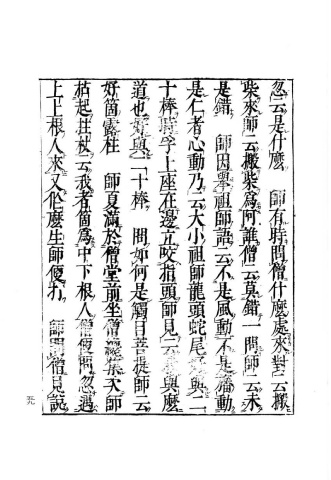 忽云是什麽　師有時問僧什麽處來對云搬
柴來師云搬柴爲阿誰僧云莫錯一問師云未
是錯　師因擧祖師語云不是風動不是旛動
是仁者心動乃云大小祖師龍頭蛇尾好與二
十棒時孚上座在邊立咬指頭師見云我與麽
道也好與二十棒　問如何是觸目菩提師云
好箇露柱　師夏滿於僧堂前坐僧纔集次師
拈起拄杖云我者箇爲中下根人僧便問忽遇
上上根人來又作麽生師便打　師問僧見說